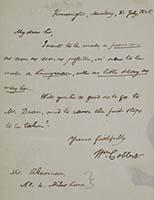 Kensington, Monday, 21. July 1828.
My dear Sir,
I want to be made a
as soon as possible, I want to be
made a with as little delay as
may be.
Will you be so good as to go to
Mr. Dean, and to cause the first steps
to be taken?
Yours faithfully
Wm. Cobbett
Mr. Akerman,
No. 4. Miles's Lane.